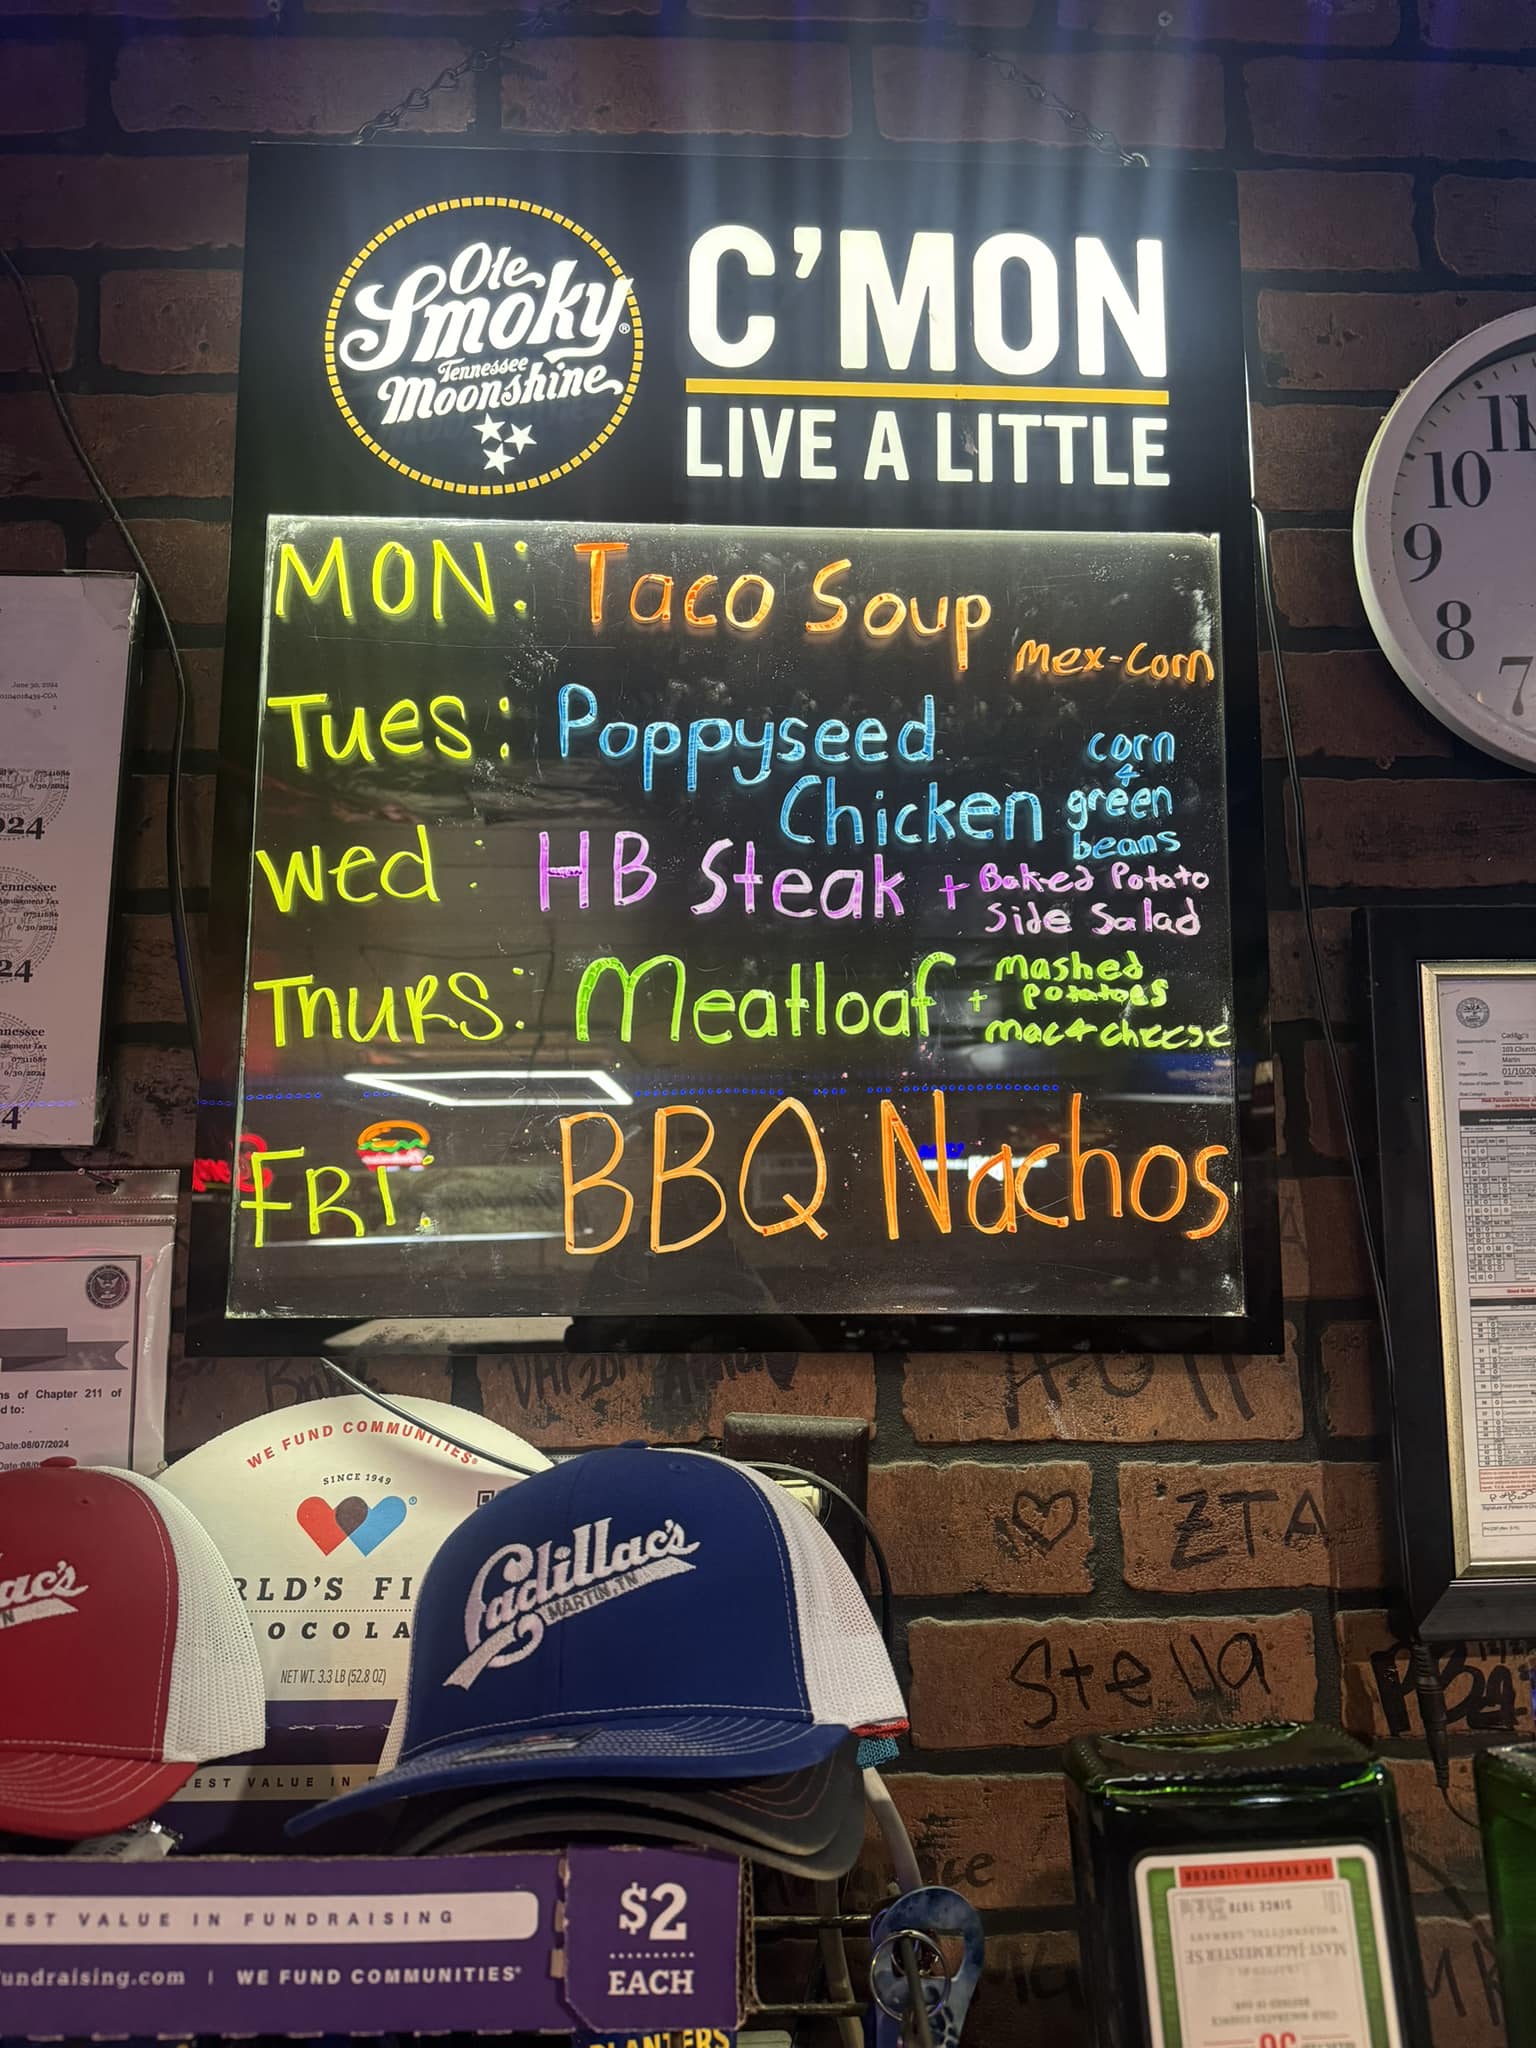 Ole
Smoky®
Tennessee
Moonshine
C'MON
LIVE A LITTLE
MON: Taco Soup
Mex-Corn
Tues: Poppyseed
Chicken
corn
&
green
beans
Wed: HB Steak + Baked Potato
Side Salad
Thurs: Meatloaf + mashed
potatoes
mac & cheese
FRI: BBQ Nachos
11
10
9
8
7
June 30, 2024
6/30/2024
024
ennessee
6/30/2024
24
nnessee
6/30/2024
4
ns of Chapter 211 of
d to:
Date:08/07/2024
Cadillac's
103 Church
Martin
01/10/20
WE FUND COMMUNITIES®
SINCE 1949
RLD'S FI
OCOLA
NET WT. 3.3 LB (52.8 OZ)
EST VALUE IN F
ac's
N
Cadillac's
MARTIN, TN
ZTA
Stella
EST VALUE IN FUNDRAISING
undraising.com | WE FUND COMMUNITIES®
$2
EACH
PLANTERS
SINCE 1878
MAST-JÄGERMEISTER SE